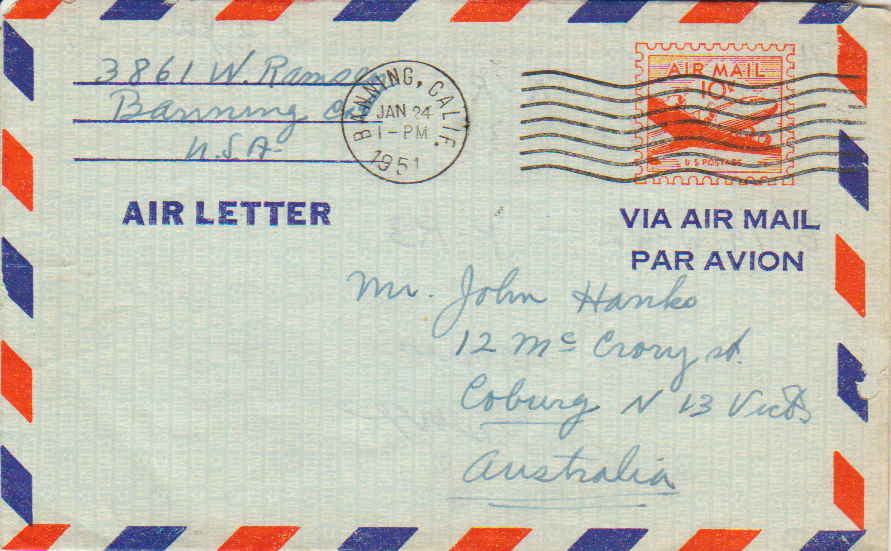 3861 W. Ramsey
Banning
U.S.A-
BANNING, CALIF.
JAN 24
1-PM
1951
AIR MAIL
10¢
U S POSTAGE
AIR LETTER
VIA AIR MAIL
PAR AVION
Mr. John Hanks
12 Mc Crory st.
Coburg N 13 Vict
Australia